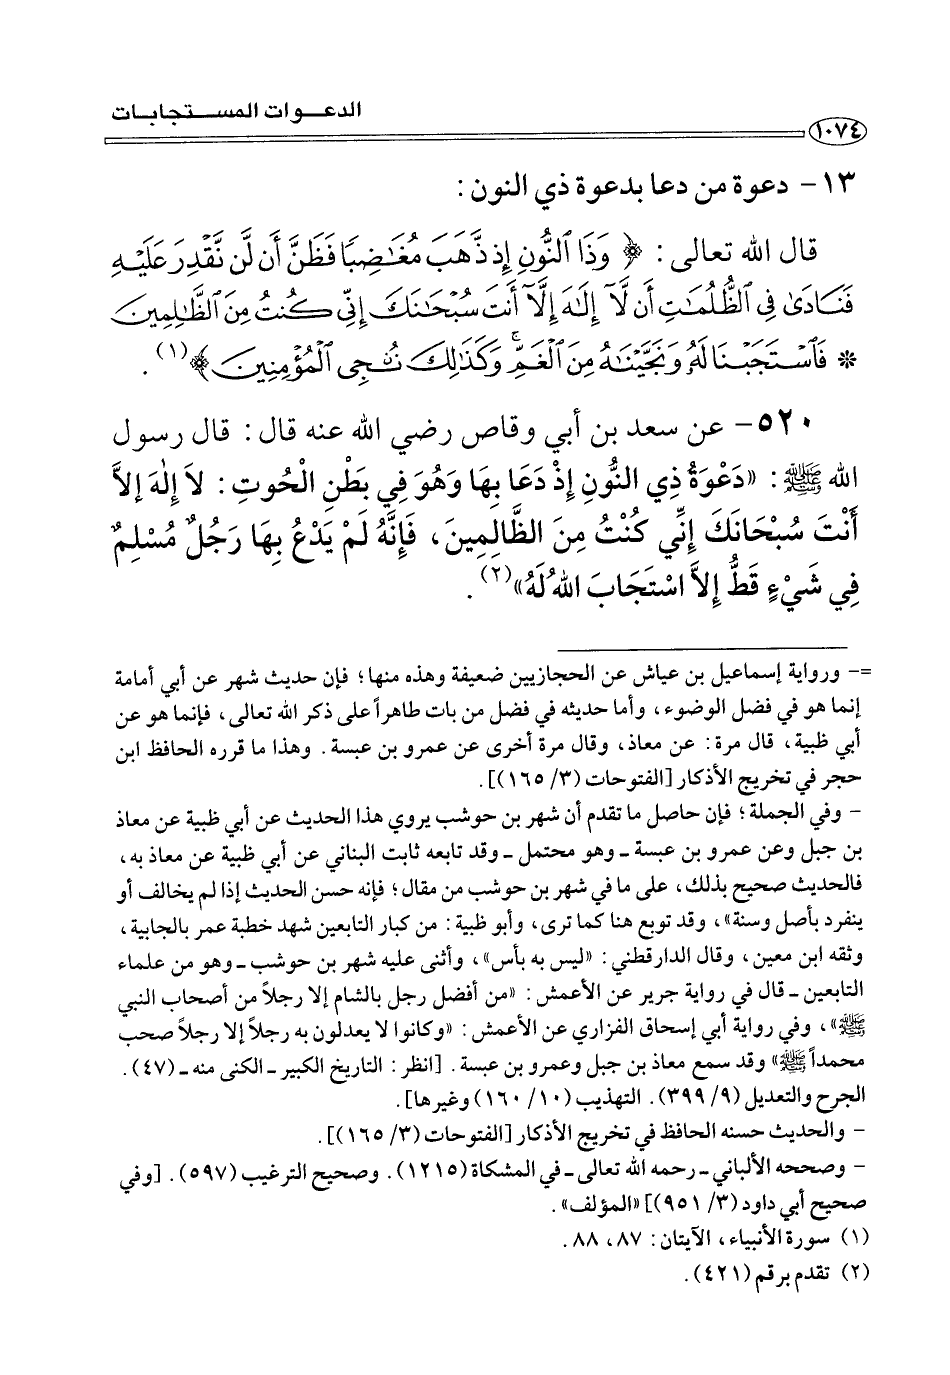 الدعوات المستجابات
١٠٧٤
١٣ - دعوة من دعا بدعوة ذي النون :
قال الله تعالى : ﴿ وَذَا ٱلنُّونِ إِذ ذَّهَبَ مُغَٰضِبًا فَظَنَّ أَن لَّن نَّقْدِرَ عَلَيْهِ
فَنَادَىٰ فِى ٱلظُّلُمَٰتِ أَن لَّآ إِلَٰهَ إِلَّآ أَنتَ سُبْحَٰنَكَ إِنِّى كُنتُ مِنَ ٱلظَّٰلِمِينَ
* فَٱسْتَجَبْنَا لَهُۥ وَنَجَّيْنَٰهُ مِنَ ٱلْغَمِّ ۚ وَكَذَٰلِكَ نُۨجِى ٱلْمُؤْمِنِينَ ﴾(١) .
٥٢٠ - عن سعد بن أبي وقاص رضي الله عنه قال : قال رسول
الله ﷺ : «دَعْوَةُ ذِي النُّونِ إِذْ دَعَا بِهَا وَهُوَ فِي بَطْنِ الْحُوتِ : لاَ إِلٰهَ إِلاَّ
أَنْتَ سُبْحَانَكَ إِنِّي كُنْتُ مِنَ الظَّالِمِينَ، فَإِنَّهُ لَمْ يَدْعُ بِهَا رَجُلٌ مُسْلِمٌ
فِي شَيْءٍ قَطُّ إِلاَّ اسْتَجَابَ اللهُ لَهُ»(٢) .
=- ورواية إسماعيل بن عياش عن الحجازيين ضعيفة وهذه منها؛ فإن حديث شهر عن أبي أمامة
إنما هو في فضل الوضوء، وأما حديثه في فضل من بات طاهراً على ذكر الله تعالى، فإنما هو عن
أبي ظبية، قال مرة: عن معاذ، وقال مرة أخرى عن عمرو بن عبسة. وهذا ما قرره الحافظ ابن
حجر في تخريج الأذكار [الفتوحات (٣/ ١٦٥)].
- وفي الجملة؛ فإن حاصل ما تقدم أن شهر بن حوشب يروي هذا الحديث عن أبي ظبية عن معاذ
بن جبل وعن عمرو بن عبسة ـ وهو محتمل ـ وقد تابعه ثابت البناني عن أبي ظبية عن معاذ به،
فالحديث صحيح بذلك، على ما في شهر بن حوشب من مقال؛ فإنه حسن الحديث إذا لم يخالف أو
ينفرد بأصل وسنة»، وقد توبع هنا كما ترى، وأبو ظبية: من كبار التابعين شهد خطبة عمر بالجابية،
وثقه ابن معين، وقال الدارقطني: «ليس به بأس»، وأثنى عليه شهر بن حوشب ـ وهو من علماء
التابعين ـ قال في رواية جرير عن الأعمش: «من أفضل رجل بالشام إلا رجلاً من أصحاب النبي
ﷺ»، وفي رواية أبي إسحاق الفزاري عن الأعمش: «وكانوا لا يعدلون به رجلاً إلا رجلاً صحب
محمداً ﷺ» وقد سمع معاذ بن جبل وعمرو بن عبسة. [انظر: التاريخ الكبير ـ الكنى منه ـ (٤٧).
الجرح والتعديل (٩/ ٣٩٩). التهذيب (١٠/ ١٦٠) وغيرها].
- والحديث حسنه الحافظ في تخريج الأذكار [الفتوحات (٣/ ١٦٥)].
- وصححه الألباني ـ رحمه الله تعالى ـ في المشكاة (١٢١٥). وصحيح الترغيب (٥٩٧). [وفي
صحيح أبي داود (٣/ ٩٥١)] «المؤلف».
(١) سورة الأنبياء، الآيتان: ٨٧، ٨٨.
(٢) تقدم برقم (٤٢١).